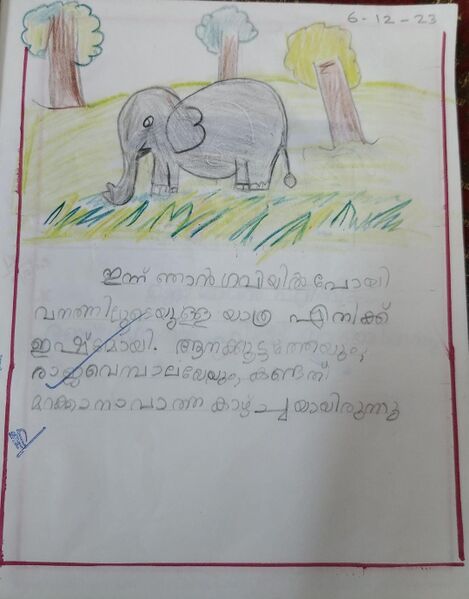 6-12-23
ഇന്ന് ഞാൻ ഗവിയിൽ പോയി
വനത്തിലൂടെയുള്ള യാത്ര എനിക്ക്
ഇഷ്ടമായി. ആനക്കൂട്ടത്തേയും,
രാജവെമ്പാലയേയും, കണ്ടത്
മറക്കാനാവാത്ത കാഴ്ച്ചയായിരുന്നു